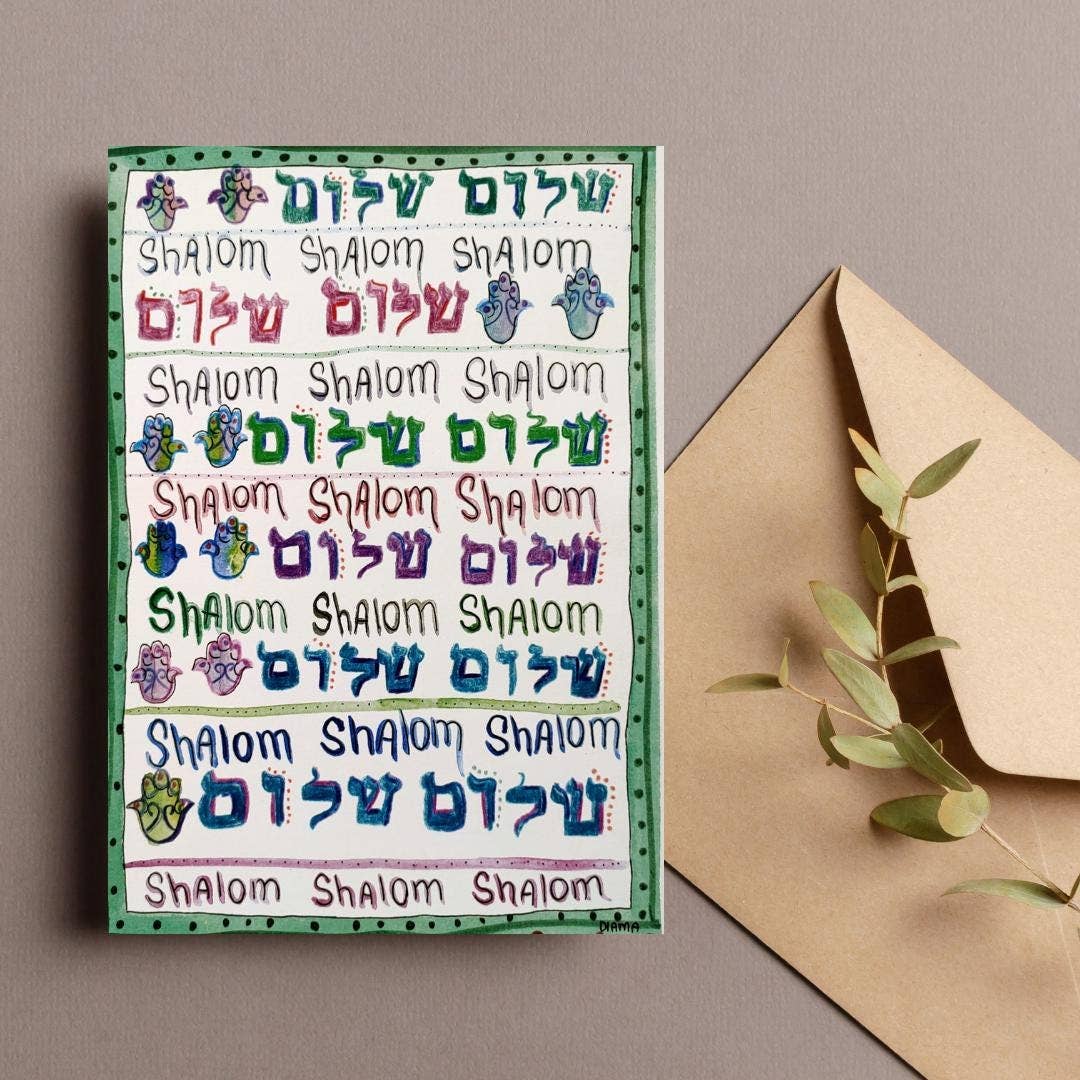 שלום שלום
ShAlom ShAlom ShAlom
שלום שלום
ShAlom ShAlom ShAlom
שלום שלום
ShAlom ShAlom ShAlom
שלום שלום
ShAlom ShAlom ShAlom
שלום שלום
ShAlom ShAlom ShAlom
שלום שלום
ShAlom ShAlom ShAlom
DIAMA